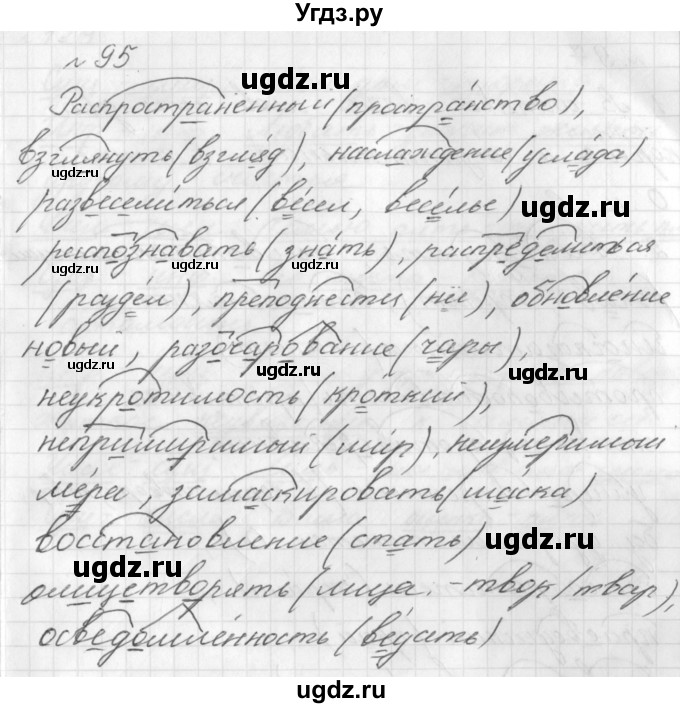 Угдз.ру
№ 95
Распространённый (пространство),
взглянуть (взгляд), наслаждение (услада)
развеселиться (весел, веселье)
распознавать (знать), распределиться
(раздел), преподнести (нёс), обновление
новый, разочарование (чары),
неукротимость (кроткий),
непримиримый (мир), неизмеримый
мера, замаскировать (маска)
восстановление (стать)
олицетворять (лица. -твор/твар),
осведомлённость (ведать)
ugdz.ru
ugdz.ru
ugdz.ru
ugdz.ru
ugdz.ru
ugdz.ru
ugdz.ru
ugdz.ru
ugdz.ru
ugdz.ru
ugdz.ru
ugdz.ru
ugdz.ru
ugdz.ru